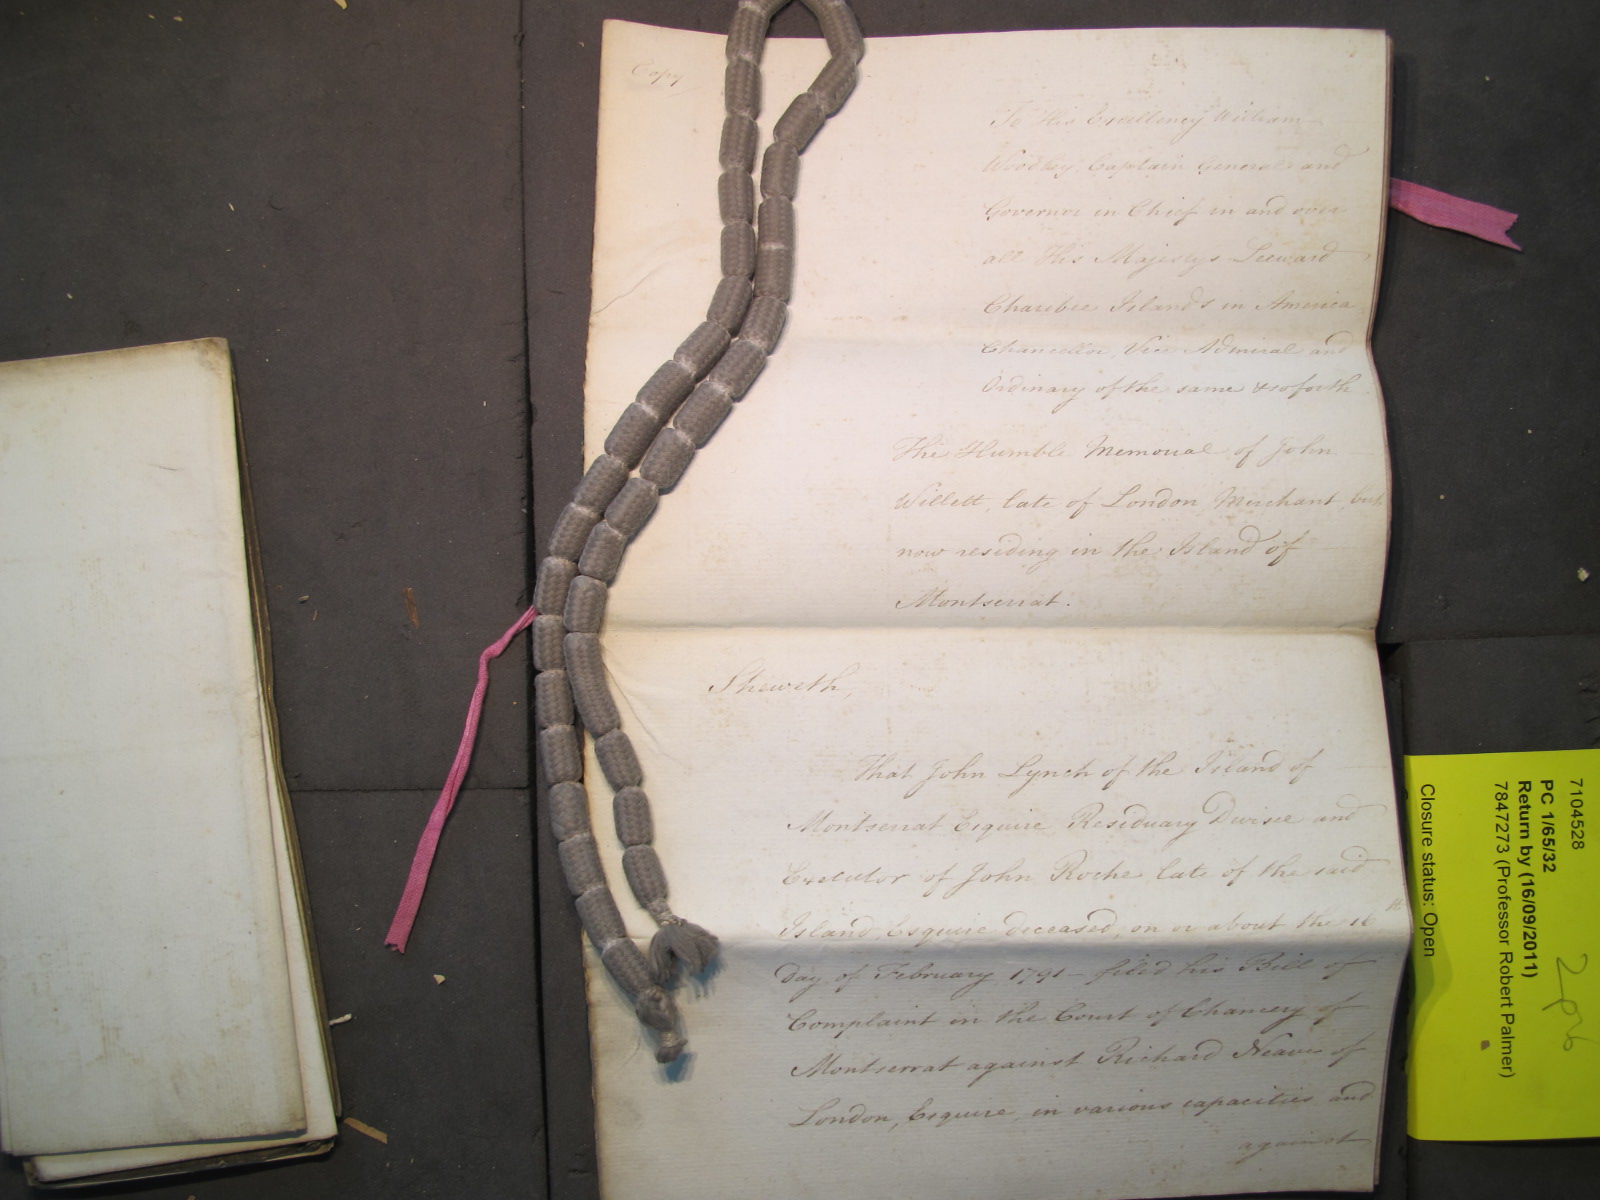 Copy
To His Excellency William
Woodley, Captain General and
Governor in Chief in and over
all His Majestys Leeward
Charibee Islands in America
Chancellor, Vice Admiral and
Ordinary of the same & soforth
The Humble Memorial of John
Willett, late of London Merchant but
now residing in the Island of
Montserrat.
Sheweth,
That John Lynch of the Island of
Montserrat Esquire Residuary Devisee and
Executor of John Roche late of the said
Island, Esquire deceased, on or about the 16th
Day of February 1791 - filed his Bill of
Complaint in the Court of Chancery of
Montserrat against Richard Neave of
London, Esquire, in various capacities and
against
7104528
PC 1/65/32
Return by (16/09/2011)
7847273 (Professor Robert Palmer)
Closure status: Open